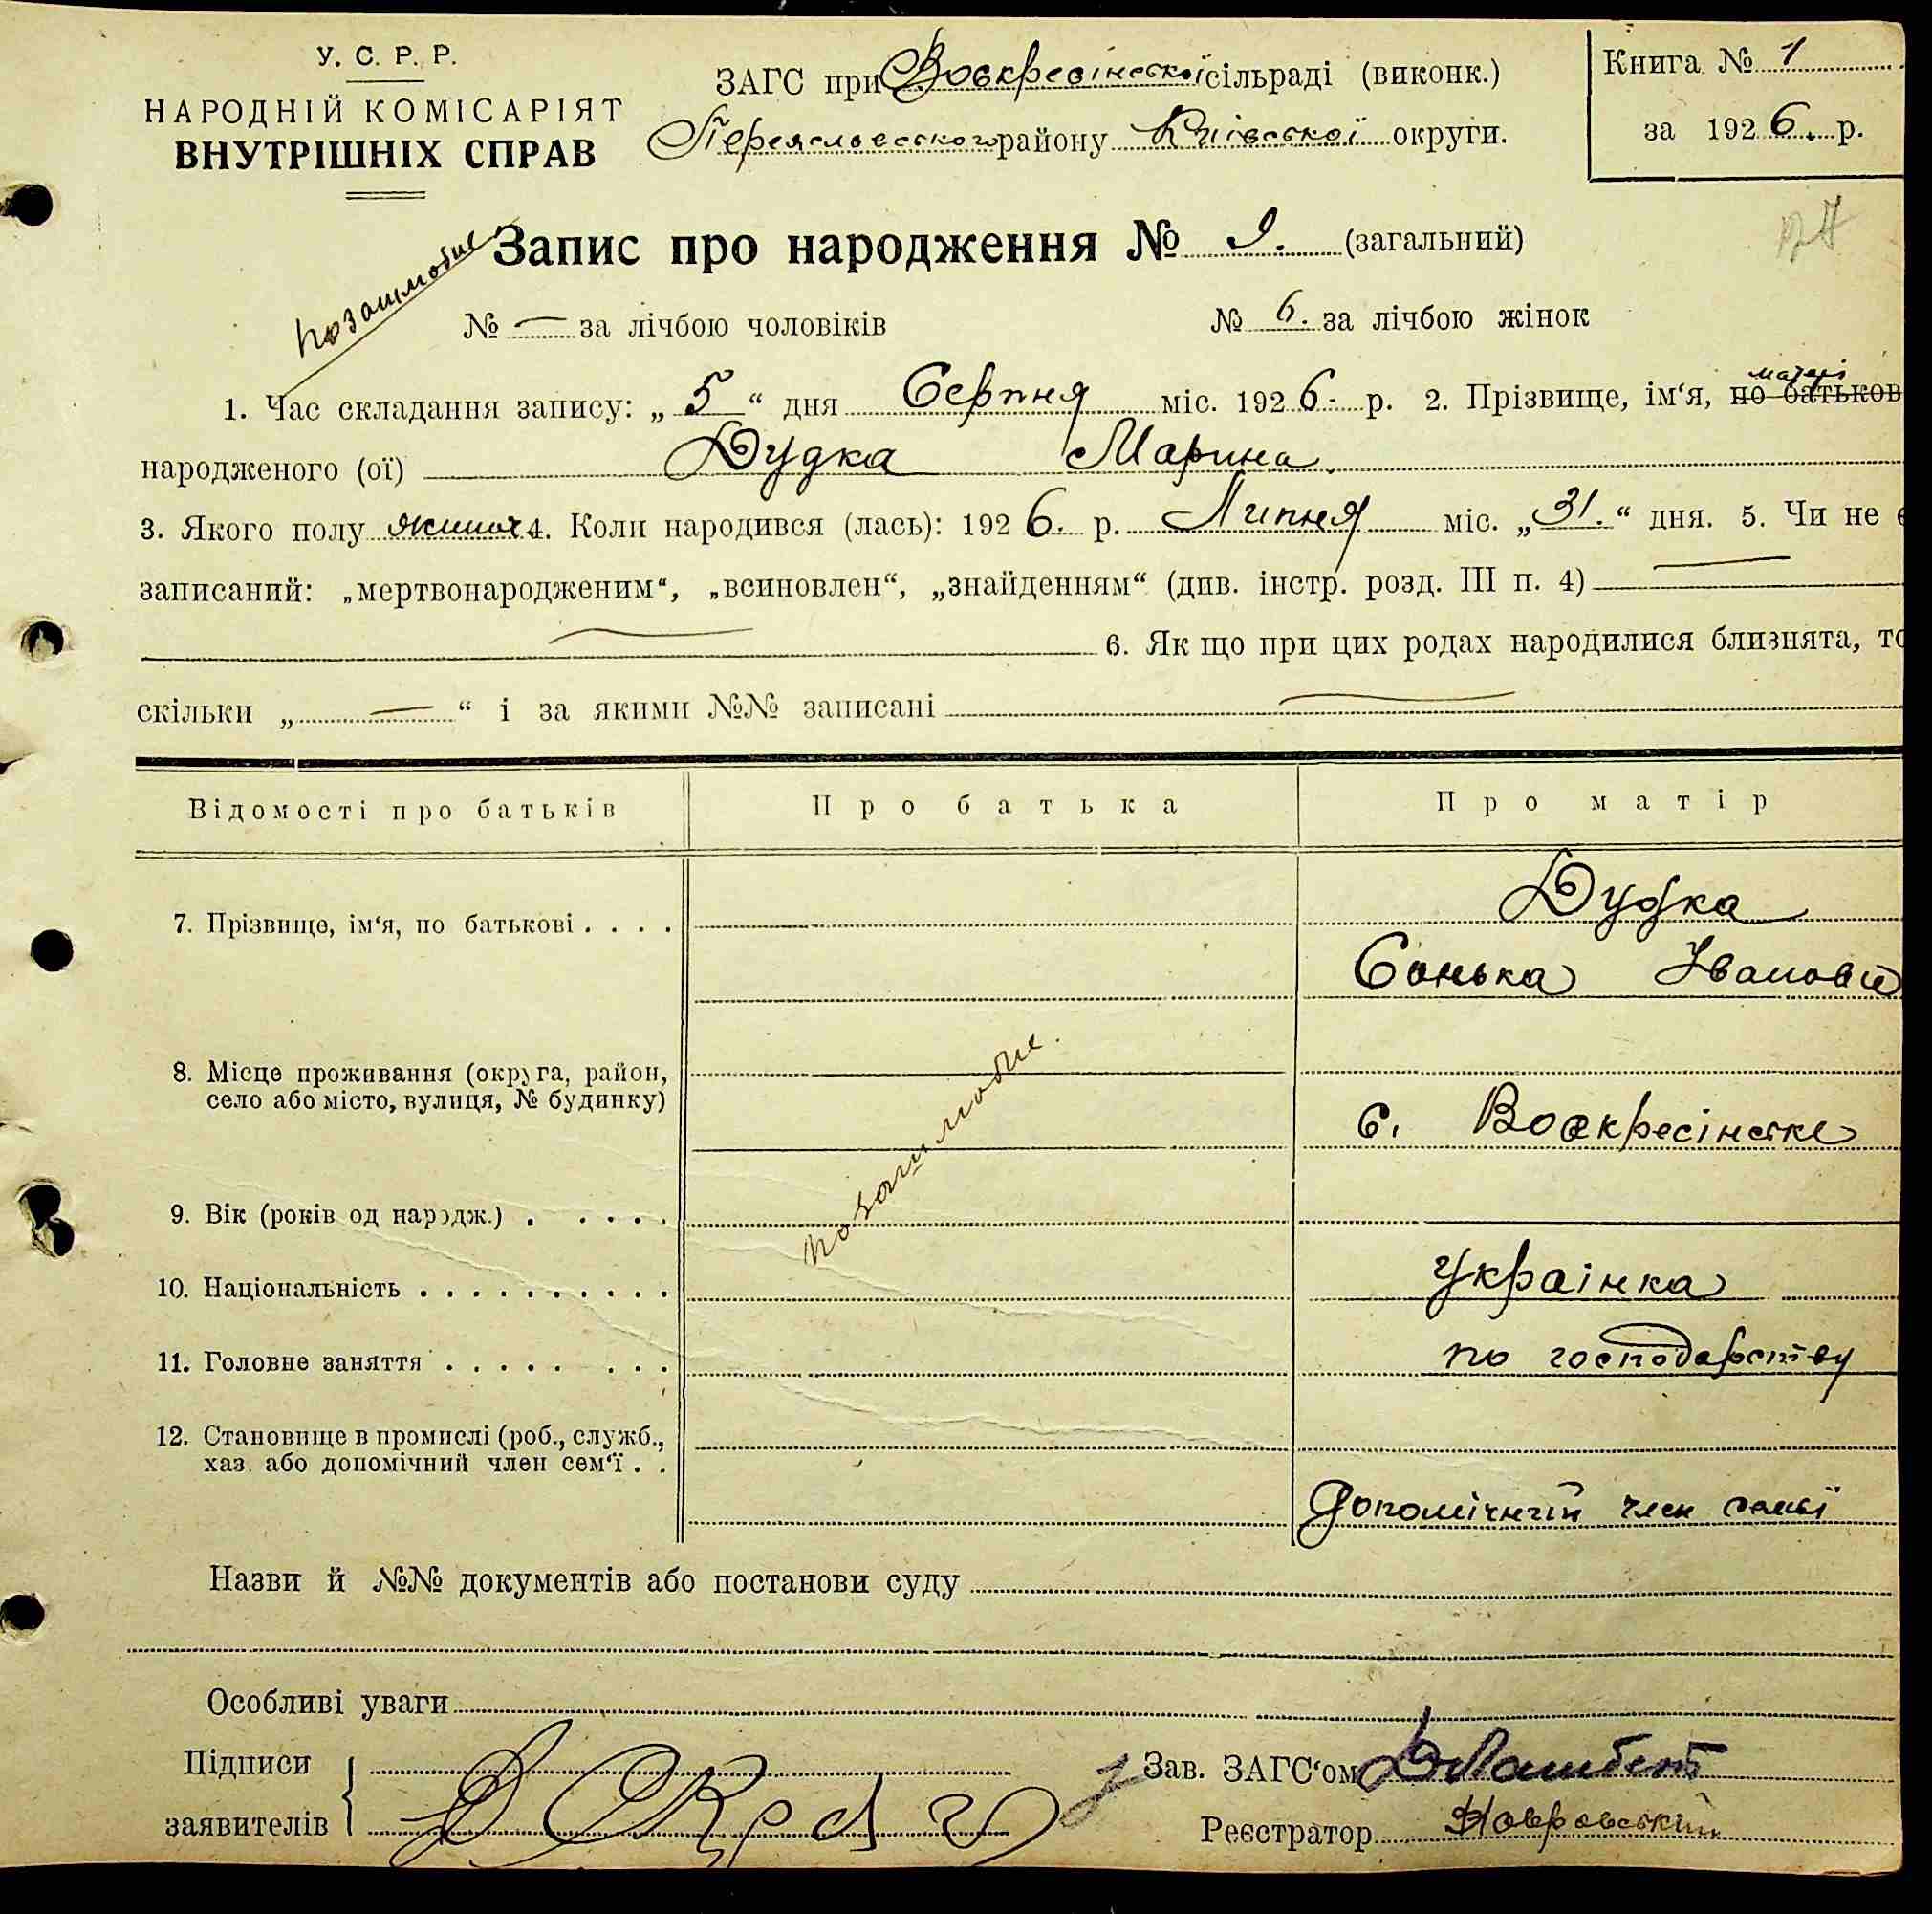 У. С. Р. Р.
НАРОДНІЙ КОМІСАРІЯТ
ВНУТРІШНІХ СПРАВ
ЗАГС при Воскресінської сільраді (виконк.)
Переяславського району Київської округи.
Книга № 1
за 1926. р.
позашлюбне
Запис про народження № 9. (загальний)
№ — за лічбою чоловіків № 6. за лічбою жінок
матері
1. Час складання запису: „5“ дня Серпня міс. 1926. р. 2. Прізвище, ім‘я, по батьков
народженого (ої) Дудка Марина.
3. Якого полу жіноч 4. Коли народився (лась): 1926. р. Липня міс. „31.“ дня. 5. Чи не є
записаний: „мертвонародженим“, „всиновлен“, „знайденням“ (див. інстр. розд. III п. 4) —
— 6. Як що при цих родах народилися близнята, то
скільки „—“ і за якими №№ записані —
Відомості про батьків Про батька Про матір
7. Прізвище, ім‘я, по батькові . . . . Дудка
Сонька Іванови
8. Місце проживання (округа, район,
село або місто, вулиця, № будинку) с. Воскресінське
позашлюбне.
9. Вік (років од народж.) . . . . .
10. Національність . . . . . . . . . . Українка
11. Головне заняття . . . . . . . . по господарству
12. Становище в промислі (роб., служб.,
хаз. або допомічний член сем‘ї . . Допомічний член семьї
Назви й №№ документів або постанови суду
Особливі уваги
Підписи
заявителів
Зав. ЗАГС‘ом
Реєстратор